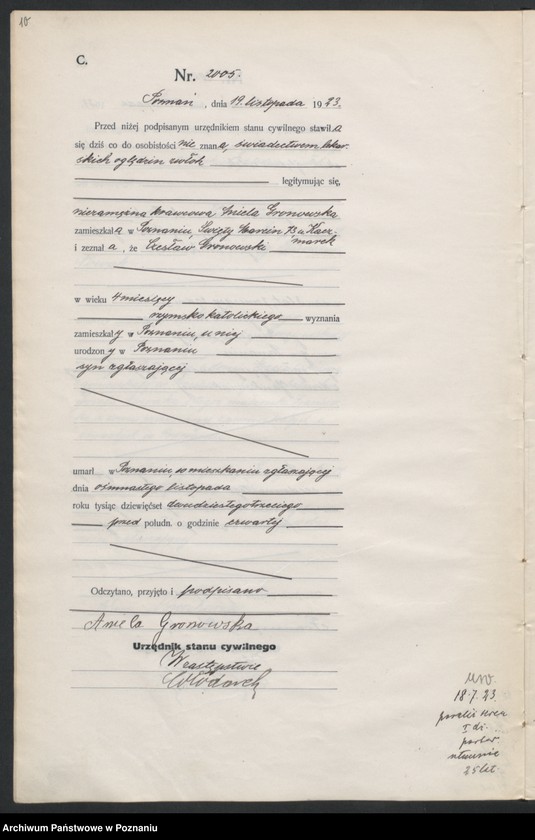 10
C.
Nr. 2005.
Poznań, dnia 19. listopada 1923.
Przed niżej podpisanym urzędnikiem stanu cywilnego stawiła
się dziś co do osobistości nie znana, świadectwem lekar-
skich oględzin zwłok
legitymując się,
niezamężna krawcowa Aniela Gronowska
zamieszkała w Poznaniu, Święty Marcin 73 u Kacz-
marek
i zeznała, że Czesław Gronowski
w wieku 4 miesięcy
rzymsko katolickiego wyznania
zamieszkały w Poznaniu, u niej
urodzony w Poznaniu
syn zgłaszającej
umarł w Poznaniu, w mieszkaniu zgłaszającej
dnia ośmnastego listopada
roku tysiąc dziewięćset dwudziestego trzeciego
przed połudn. o godzinie czwartej
Odczytano, przyjęto i podpisano
Aniela Gronowska
Urzędnik stanu cywilnego
W zastępstwie
Włodarek
18.7.23
25 let.
Archiwum Państwowe w Poznaniu